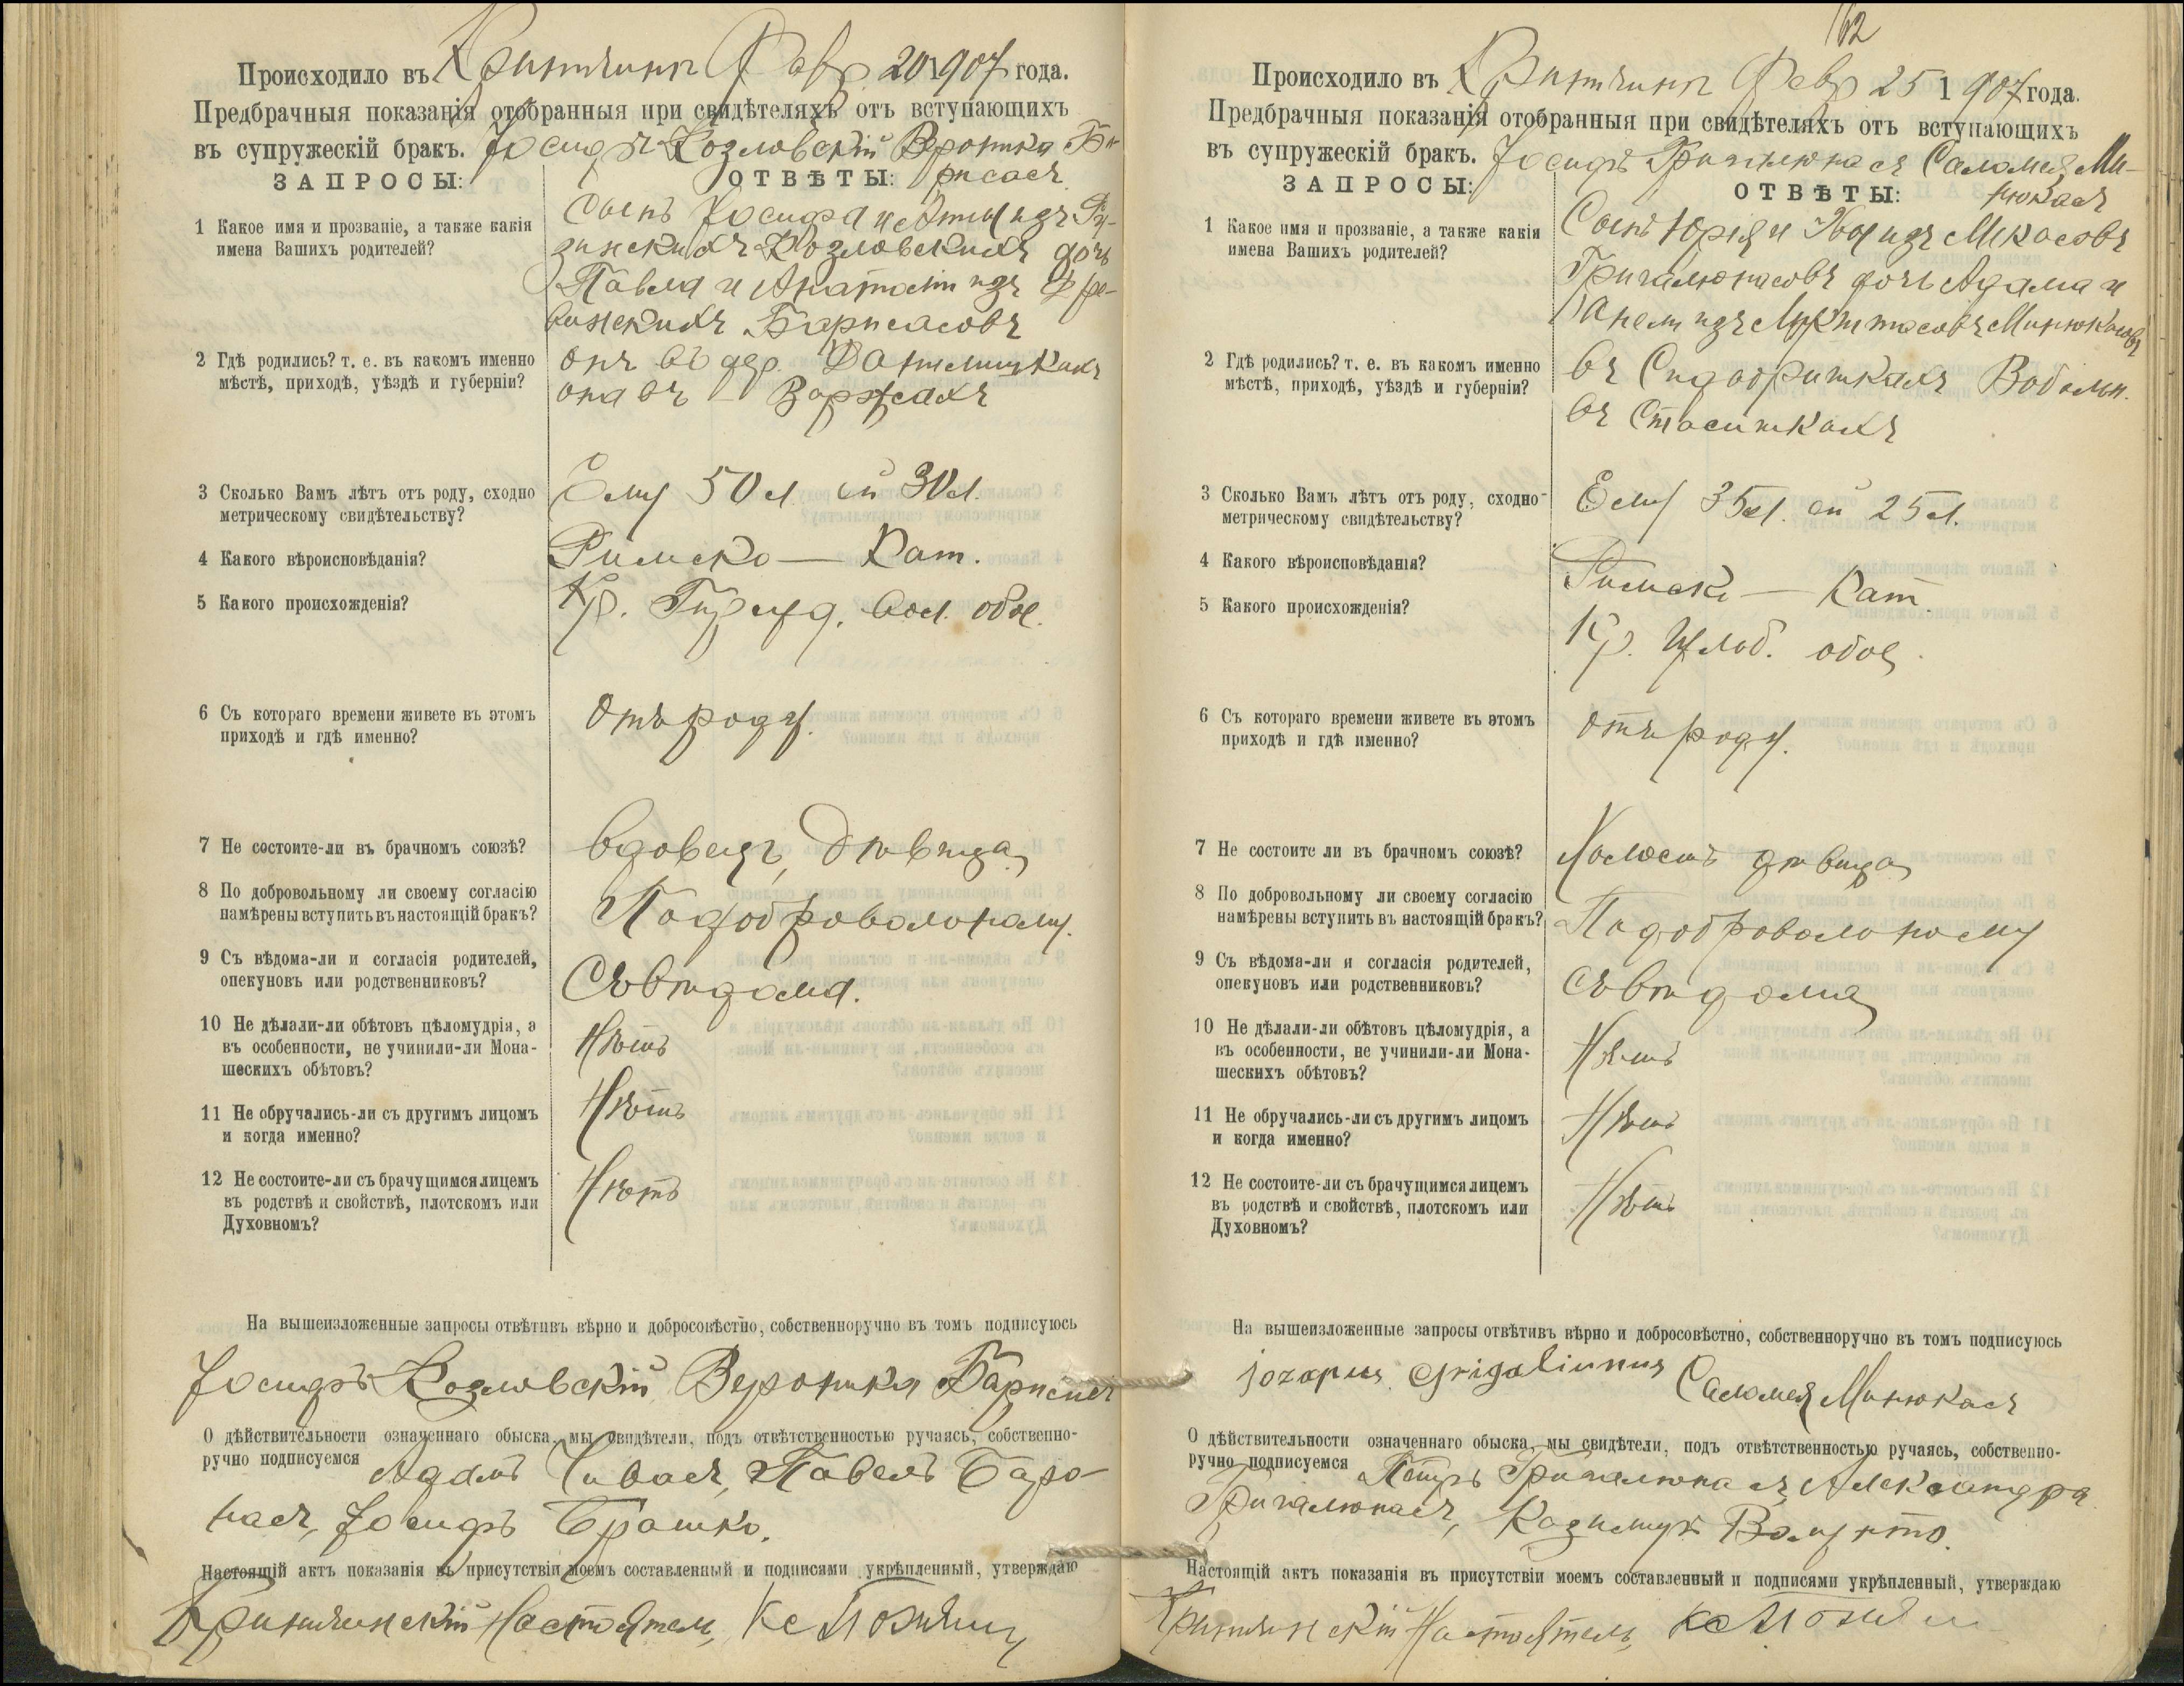 Происходило въ Февр 20 1907 года.
Предбрачныя показанія отобранныя при свидѣтеляхъ отъ вступающихъ
въ супружескій бракъ. Іосифъ Козловскій Вероника Ба-
рисасъ
ЗАПРОСЫ: ОТВѢТЫ:
1 Какое имя и прозваніе, а также какія
имена Вашихъ родителей?
Сынъ Іосифа и Анны изъ
Козловскихъ дочь
Павла и изъ
Барисасовъ
2 Гдѣ родились? т. е. въ какомъ именно
мѣстѣ, приходѣ, уѣздѣ и губерніи?
онъ въ дер.
она въ
3 Сколько Вамъ лѣтъ отъ роду, сходно
метрическому свидѣтельству?
Ему 50 л. ей 30 л.
4 Какого вѣроисповѣданія?
Римско — Кат.
5 Какого происхожденія?
Кр. вол. обое.
6 Съ котораго времени живете въ этомъ
приходѣ и гдѣ именно?
Отъ роду.
7 Не состоите-ли въ брачномъ союзѣ?
Вдовецъ, дѣвица
8 По добровольному ли своему согласію
намѣрены вступить въ настоящій бракъ?
По добровольному.
9 Съ вѣдома-ли и согласія родителей,
опекуновъ или родственниковъ?
Съ вѣдома.
10 Не дѣлали-ли обѣтовъ цѣломудрія, а
въ особенности, не учинили-ли Мона-
шескихъ обѣтовъ?
Нѣтъ
11 Не обручались-ли съ другимъ лицомъ
и когда именно?
Нѣтъ
12 Не состоите-ли съ брачущимся лицемъ
въ родствѣ и свойствѣ, плотскомъ или
Духовномъ?
Нѣтъ
На вышеизложенные запросы отвѣтивъ вѣрно и добросовѣстно, собственноручно въ томъ подписуюсь
Іосифъ Козловскій Вероника Барисасъ
О дѣйствительности означеннаго обыска, мы свидѣтели, подъ отвѣтственностью ручаясь, собственно-
ручно подписуемся Адамъ Павелъ Баро-
насъ, Іосифъ Брашко.
Настоящій актъ показанія въ присутствіи моемъ составленный и подписями укрѣпленный, утверждаю
Настоятель, Кс
162
Происходило въ Февр 25 1907 года.
Предбрачныя показанія отобранныя при свидѣтеляхъ отъ вступающихъ
въ супружескій бракъ. Іосифъ Григалюнасъ Саломея Ми-
нюкасъ
ЗАПРОСЫ: ОТВѢТЫ:
1 Какое имя и прозваніе, а также какія
имена Вашихъ родителей?
Сынъ Юрія и изъ
Григалюнасовъ дочь Адама и
Анели изъ Минюкасовъ
2 Гдѣ родились? т. е. въ какомъ именно
мѣстѣ, приходѣ, уѣздѣ и губерніи?
въ
въ Стасишкахъ
3 Сколько Вамъ лѣтъ отъ роду, сходно
метрическому свидѣтельству?
Ему 35 л. ей 25 л.
4 Какого вѣроисповѣданія?
Римско — Кат.
5 Какого происхожденія?
Кр. обое
6 Съ котораго времени живете въ этомъ
приходѣ и гдѣ именно?
Отъ роду.
7 Не состоите ли въ брачномъ союзѣ?
Холостъ дѣвица
8 По добровольному ли своему согласію
намѣрены вступить въ настоящій бракъ?
По добровольному
9 Съ вѣдома-ли и согласія родителей,
опекуновъ или родственниковъ?
Съ вѣдома
10 Не дѣлали-ли обѣтовъ цѣломудрія, а
въ особенности, не учинили-ли Мона-
шескихъ обѣтовъ?
Нѣтъ
11 Не обручались-ли съ другимъ лицомъ
и когда именно?
Нѣтъ
12 Не состоите-ли съ брачущимся лицемъ
въ родствѣ и свойствѣ, плотскомъ или
Духовномъ?
Нѣтъ
На вышеизложенные запросы отвѣтивъ вѣрно и добросовѣстно, собственноручно въ томъ подписуюсь
jozapus grigaliunus Саломея Минюкасъ
О дѣйствительности означеннаго обыска, мы свидѣтели, подъ отвѣтственностью ручаясь, собственно-
ручно подписуемся Петръ Григалюнасъ, Александра
Григалюнасъ, Казимиръ
Настоящій актъ показанія въ присутствіи моемъ составленный и подписями укрѣпленный, утверждаю
Настоятель, Кс